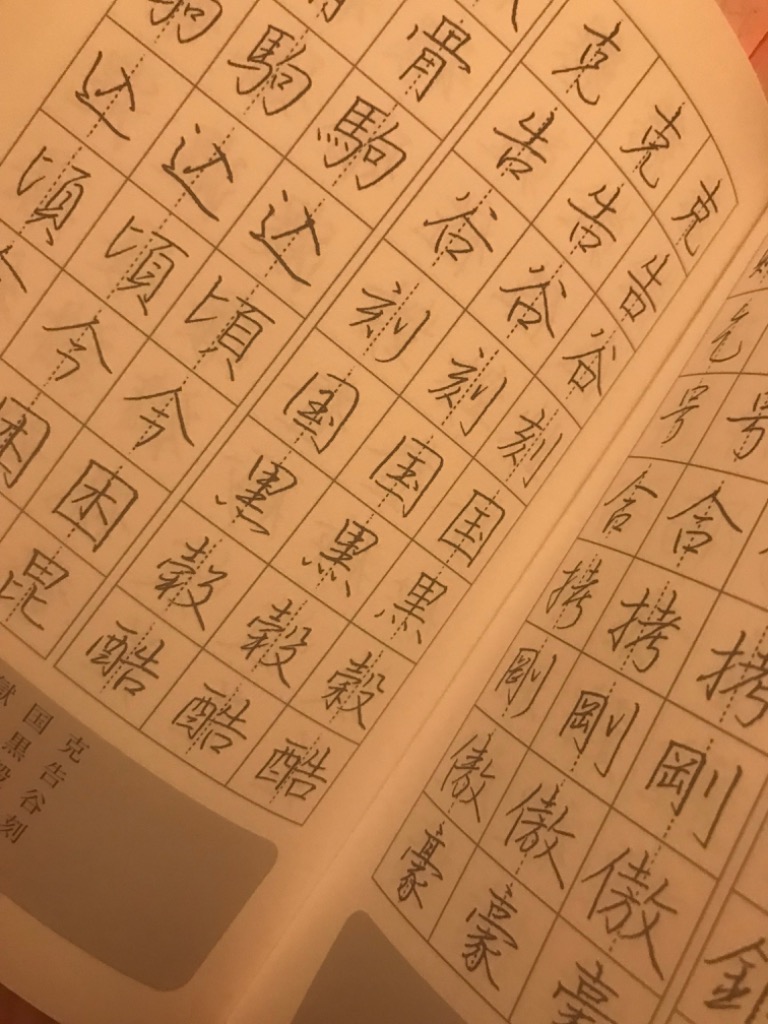 拷剛傲豪
号合拷剛傲豪
乞号合拷剛傲豪
克告谷刻国黒穀酷
克告谷刻国黒穀酷
克告谷刻国黒穀酷
骨駒込頃今困昆
駒込頃今困
駒込頃今
克告谷刻
国黒穀
獄